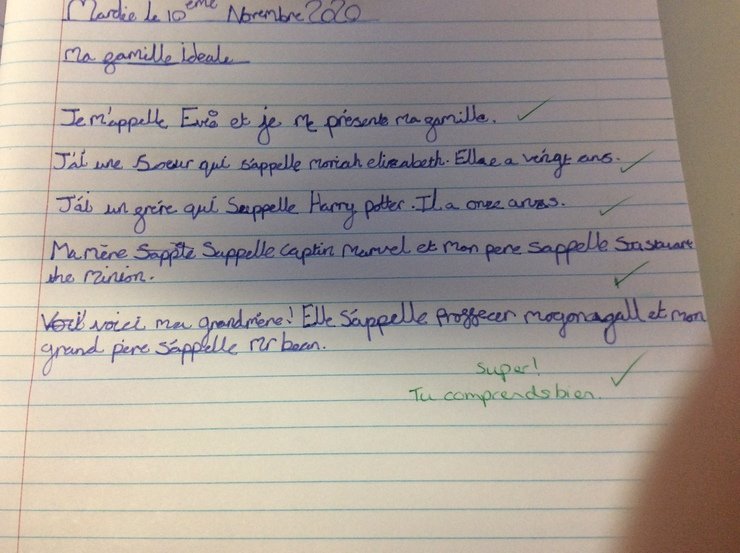 Mardée le 10 ème Novembre 2020
Ma gamille ideale
Je m'appelle Evie et je me présente ma gamille.
J'ai une soeur qui s'appelle moriah elizabeth. Elle a vengt ans.
J'ai un grére qui S'appelle Harry potter. Il a onze anns.
Ma mère S'appelle captin marvel et mon pere s'appelle Stewart
the minion.
voici ma grandmère! Elle s'appelle proffecer mogonagall et mon
grand pére s'appelle Mr bean.
Super!
Tu comprends bien.